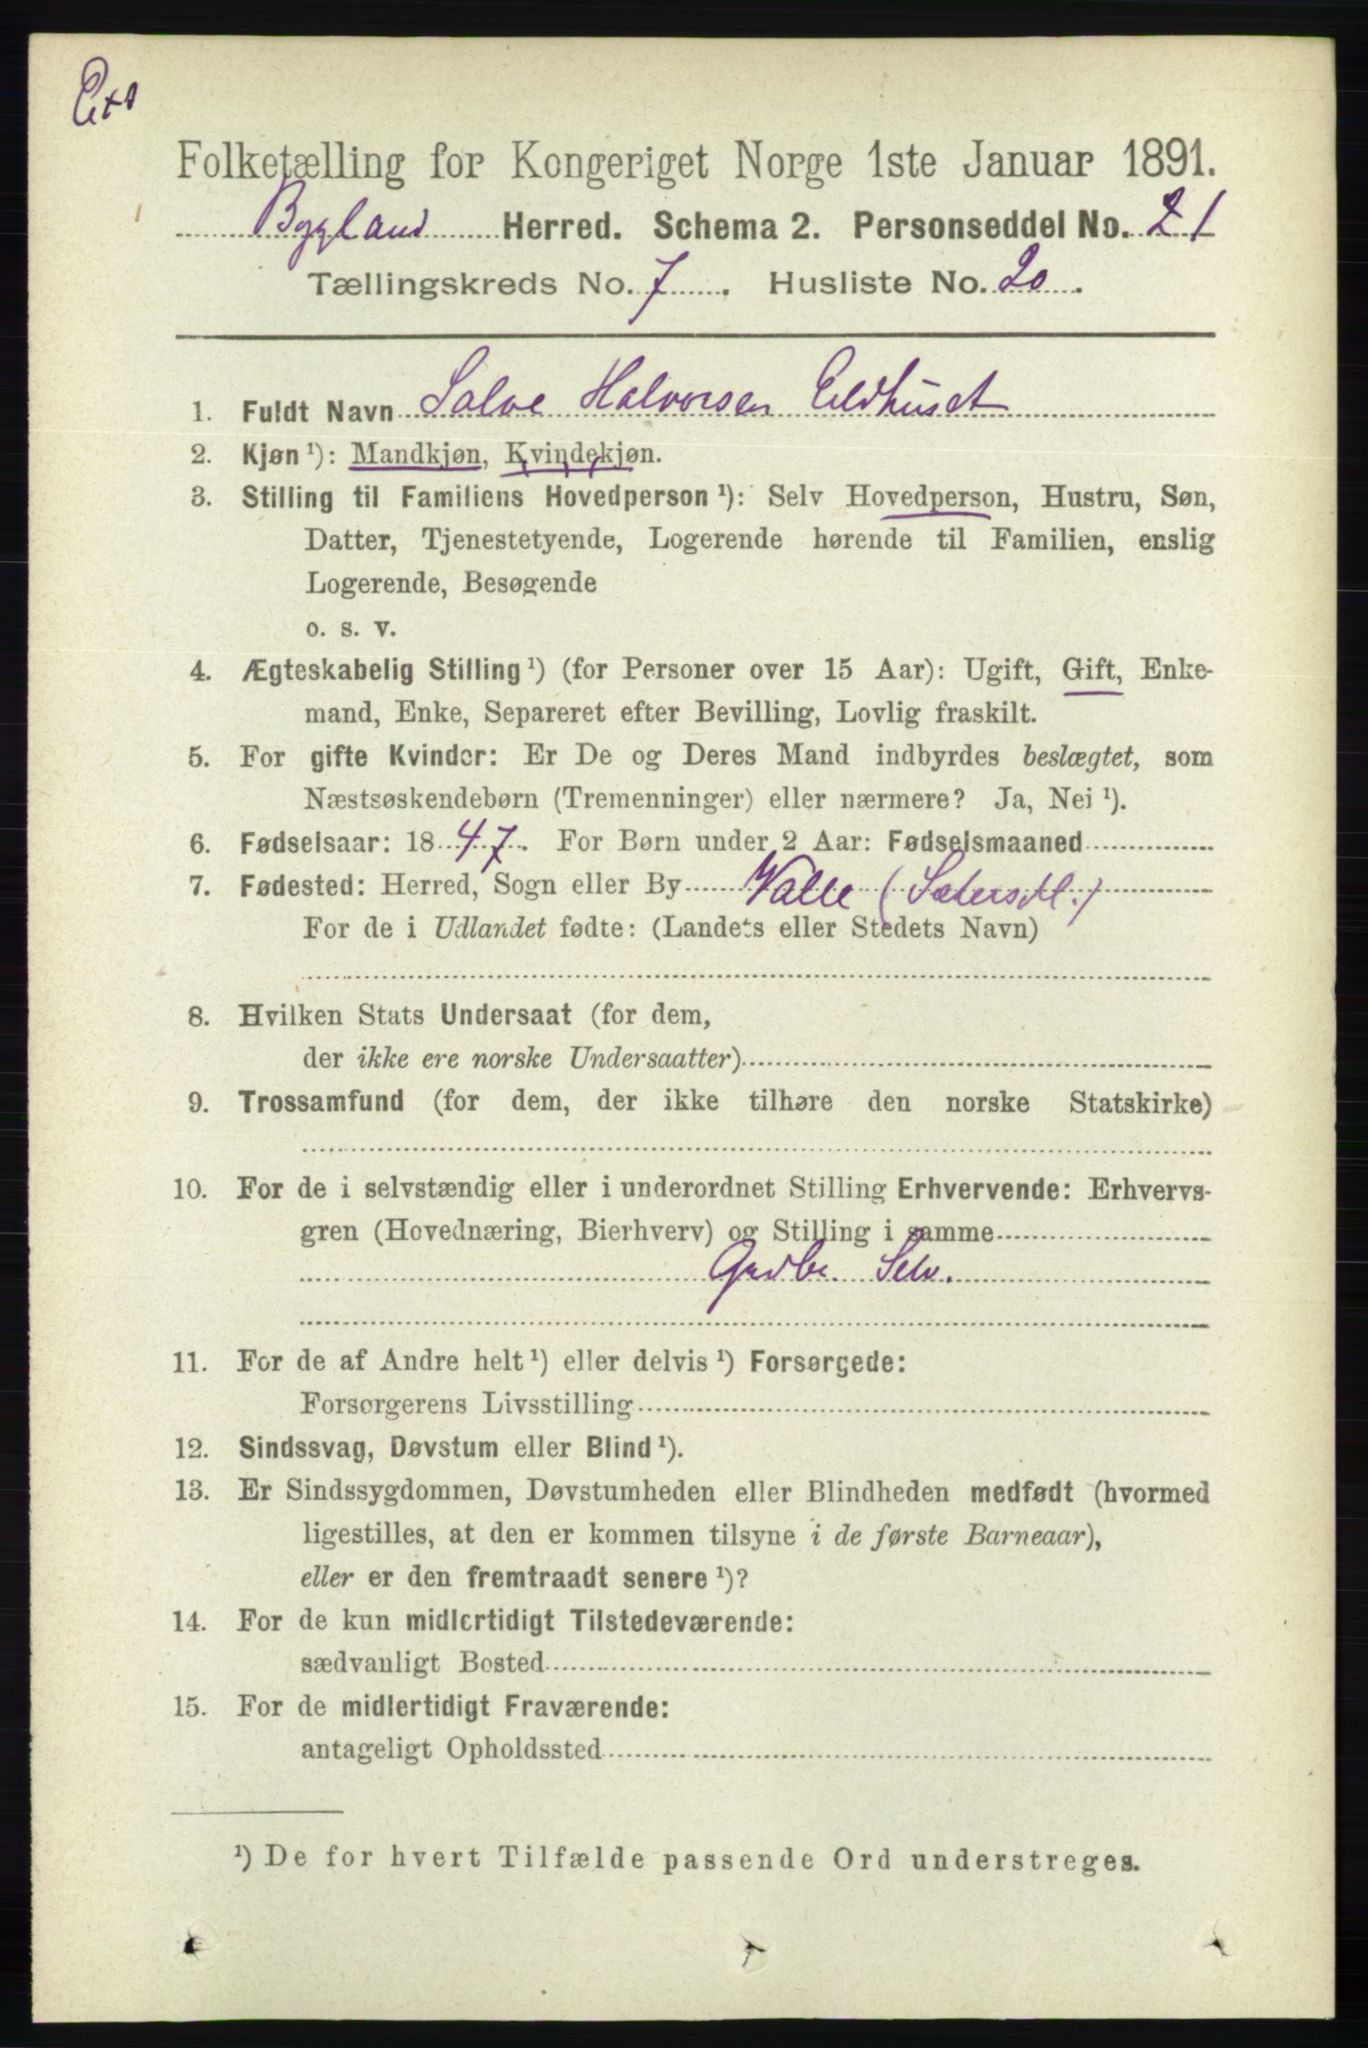 Folketælling for Kongeriget Norge 1ste Januar 1891.
Bygland Herred. Schema 2. Personseddel No. 21
Tællingskreds No. 7. Husliste No. 20.
1. Fuldt Navn Salve Halvorsen Eldhuset
2. Kjøn ¹): Mandkjøn, Kvindekjøn.
3. Stilling til Familiens Hovedperson ¹): Selv Hovedperson, Hustru, Søn,
Datter, Tjenestetyende, Logerende hørende til Familien, enslig
Logerende, Besøgende
o. s. v.
4. Ægteskabelig Stilling ¹) (for Personer over 15 Aar): Ugift, Gift, Enke-
mand, Enke, Separeret efter Bevilling, Lovlig fraskilt.
5. For gifte Kvinder: Er De og Deres Mand indbyrdes beslægtet, som
Næstsøskendebørn (Tremenninger) eller nærmere? Ja, Nei ¹).
6. Fødselsaar: 1847. For Børn under 2 Aar: Fødselsmaaned
7. Fødested: Herred, Sogn eller By Valle (Sætersd.)
For de i Udlandet fødte: (Landets eller Stedets Navn)
8. Hvilken Stats Undersaat (for dem,
der ikke ere norske Undersaatter)
9. Trossamfund (for dem, der ikke tilhøre den norske Statskirke)
10. For de i selvstændig eller i underordnet Stilling Erhvervende: Erhvervs-
gren (Hovednæring, Bierhverv) og Stilling i samme
Gndbr. Selv.
11. For de af Andre helt ¹) eller delvis ¹) Forsørgede:
Forsørgerens Livsstilling
12. Sindssvag, Døvstum eller Blind ¹).
13. Er Sindssygdommen, Døvstumheden eller Blindheden medfødt (hvormed
ligestilles, at den er kommen tilsyne i de første Barneaar),
eller er den fremtraadt senere ¹)?
14. For de kun midlertidigt Tilstedeværende:
sædvanligt Bosted
15. For de midlertidigt Fraværende:
antageligt Opholdssted
¹) De for hvert Tilfælde passende Ord understreges.